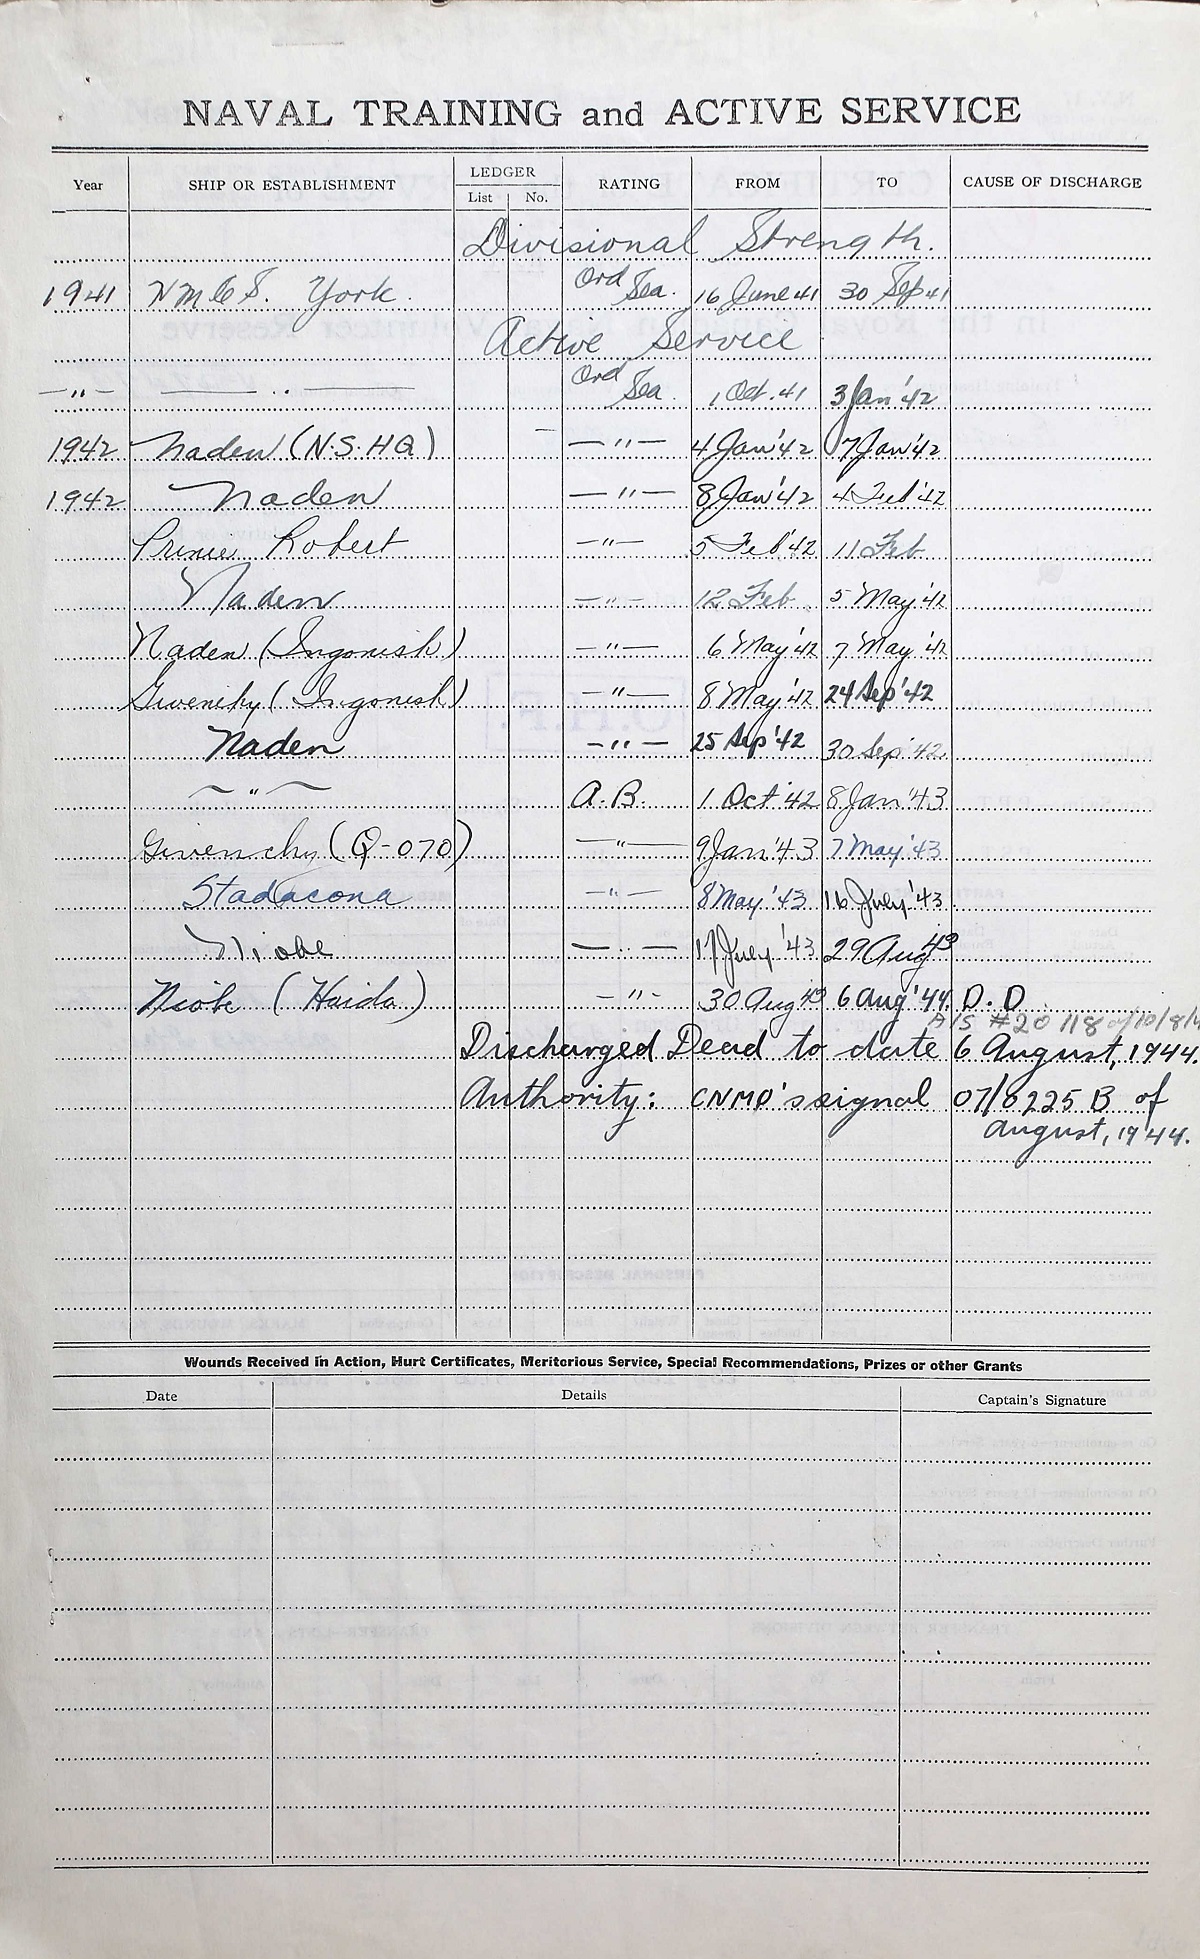 NAVAL TRAINING and ACTIVE SERVICE
Year SHIP OR ESTABLISHMENT LEDGER List No. RATING FROM TO CAUSE OF DISCHARGE
Divisional Strength.
1941 HMCS. York. Ord Sea. 16 June 41 30 Sep 41
Active Service
— " — — " — Ord Sea. 1 Oct. 41 3 Jan '42
1942 Naden (N.S.HQ) — " — 4 Jan '42 7 Jan '42
1942 Naden — " — 8 Jan '42 4 Feb '42
Prince Robert — " — 5 Feb '42 11 Feb
Naden — " — 12 Feb. 5 May '42
Naden (Ingonish) — " — 6 May '42 7 May '42
Givenchy (Ingonish) — " — 8 May '42 24 Sep '42
Naden — " — 25 Sep '42 30 Sep '42.
— " — A.B. 1 Oct '42 8 Jan '43
Givenchy (Q-070) — " — 9 Jan '43 7 May '43
Stadacona — " — 8 May '43 16 July '43
Niobe — " — 17 July '43 29 Aug 43
Niobe (Haida) — " — 30 Aug 43 6 Aug '44. D.D.
A/S #20118 of 10/8/4
Discharged Dead to date 6 August, 1944.
Authority: CNMO's signal 07/0225 B of
August, 1944.
Wounds Received in Action, Hurt Certificates, Meritorious Service, Special Recommendations, Prizes or other Grants
Date Details Captain's Signature